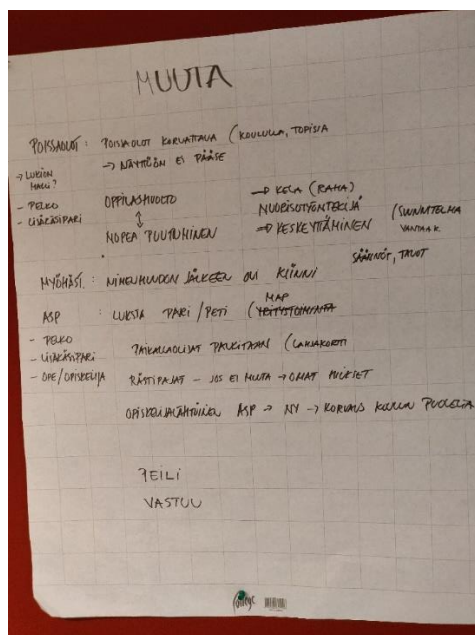 MUUTA
POISSAOLOT: POISSAOLOT KORVATTAVA (KOULULLA, TOPISSA
→ NÄYTTÖÖN EI PÄÄSE
→ LUKION MALLI?
- PELKO
- LISÄKÄSIPARI
OPPILASHUOLTO
↕
NOPEA PUUTTUMINEN
→ KELA (RAHA)
NUORISOTYÖNTEKIJÄ
→ KESKEYTTÄMINEN
(SUUNNITELMA
VANTAA K.
SÄÄNNÖT, TAVAT
MYÖHÄST: NIMENHUUDON JÄLKEEN OVI KIINNI
ASP : LUKSIA PARI / PETI (YRITYSTOIMINTA
MAP
- PELKO
- LISÄKÄSIPARI
- OPE/OPISKELIJA
PAIKALLAOLIJAT PALKITAAN (LAHJAKORTI
RÄSTIPAJAT - JOS EI MUUTA → OMAT
OPISKELIJALÄHTÖINEN ASP → NY → KORVAUS KOULUN PUOLELTA
PEILI
VASTUU